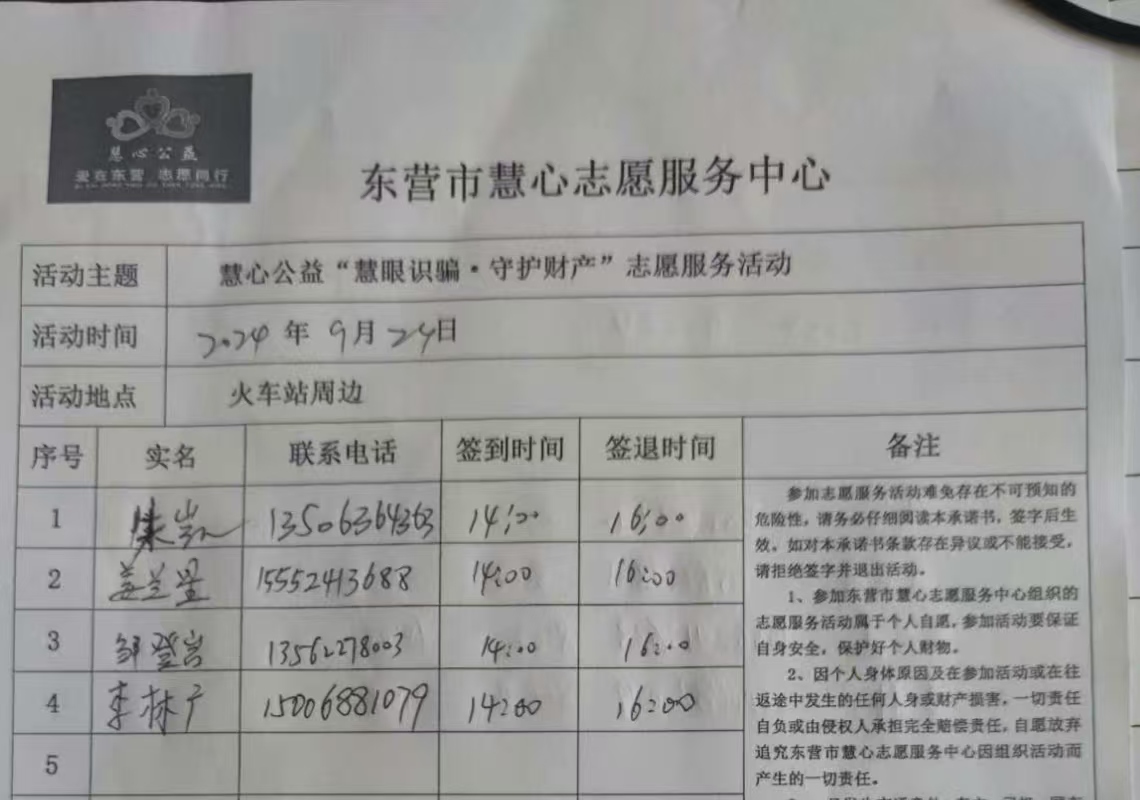 慧心公益
爱在东营 志愿同行
东营市慧心志愿服务中心
活动主题 慧心公益“慧眼识骗·守护财产”志愿服务活动
活动时间 2024年9月24日
活动地点 火车站周边
序号 实名 联系电话 签到时间 签退时间 备注
1 朱岩 13506364363 14:00 16:00
2 姜兰星 15552413688 14:00 16:00
3 邹登岩 13562278003 14:00 16:00
4 李林广 15006881079 14:00 16:00
5
参加志愿服务活动难免存在不可预知的
危险性，请务必仔细阅读本承诺书，签字后生
效。如对本承诺书条款存在异议或不能接受，
请拒绝签字并退出活动。
1、参加东营市慧心志愿服务中心组织的
志愿服务活动属于个人自愿，参加活动要保证
自身安全，保护好个人财物。
2、因个人身体原因及在参加活动或在往
返途中发生的任何人身或财产损害，一切责任
自负或由侵权人承担完全赔偿责任，自愿放弃
追究东营市慧心志愿服务中心因组织活动而
产生的一切责任。